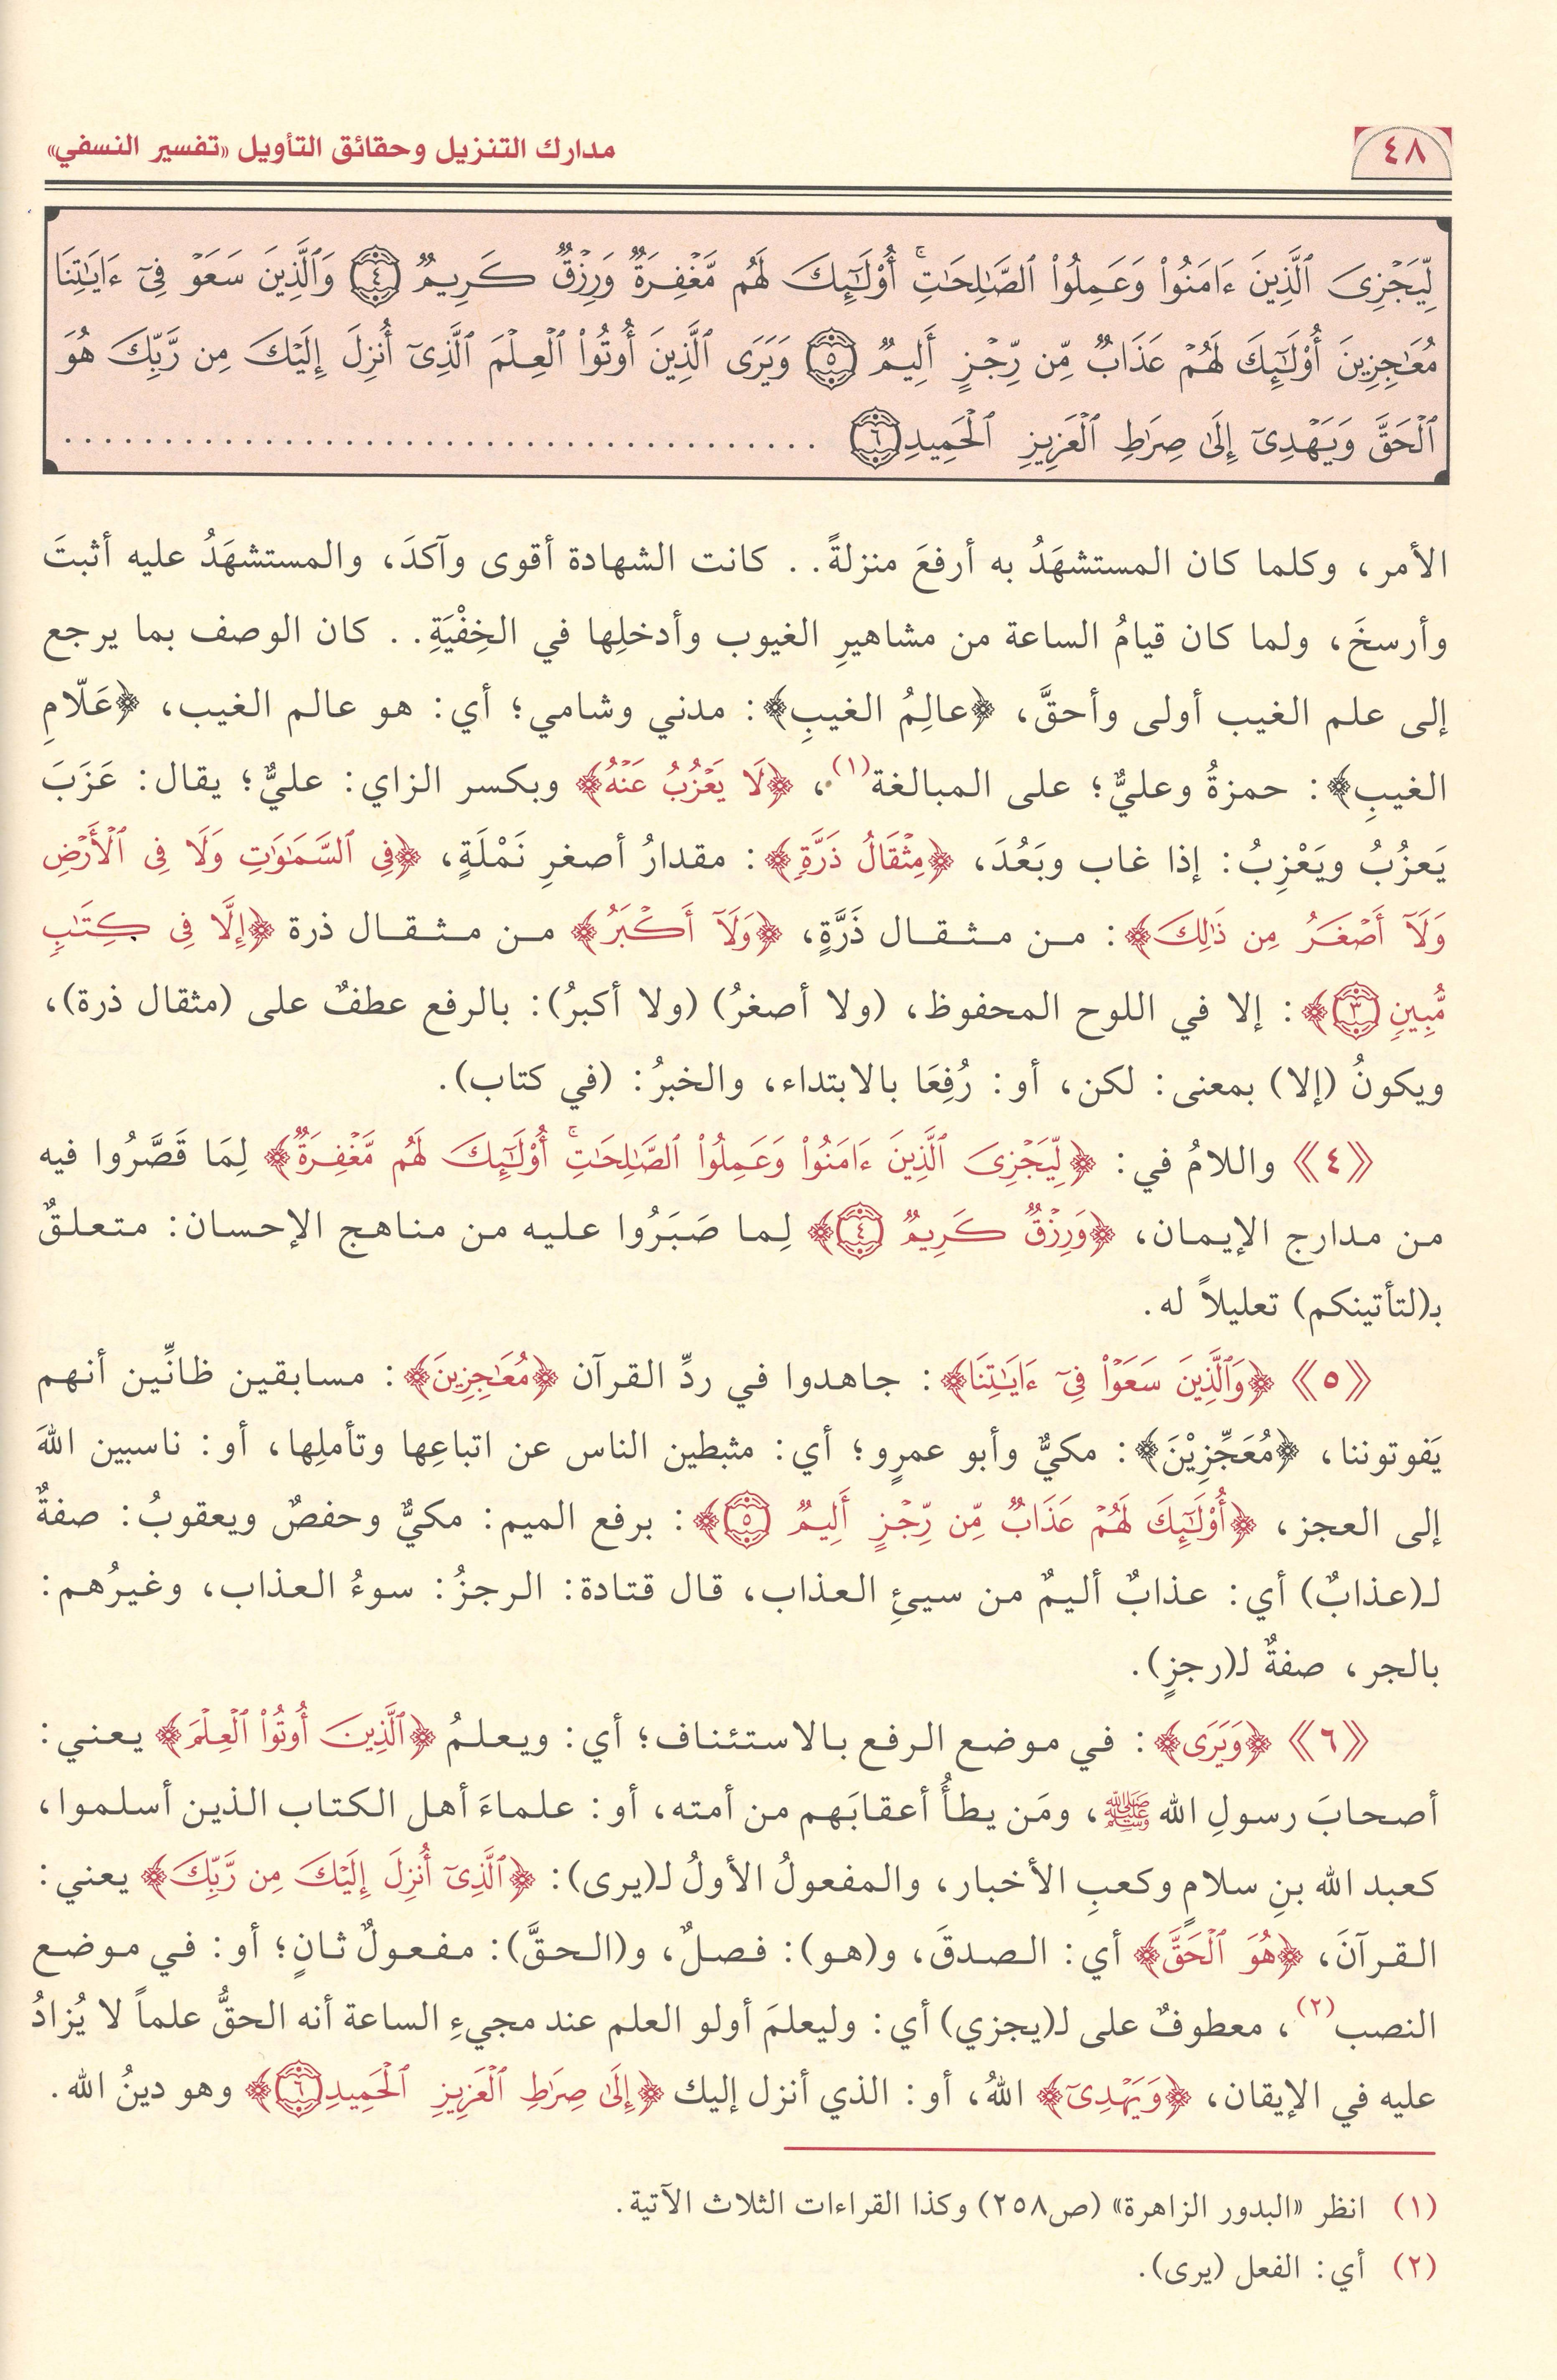 ٤٨
مدارك التنزيل وحقائق التأويل «تفسير النسفي»
لِّيَجْزِىَ ٱلَّذِينَ ءَامَنُوا۟ وَعَمِلُوا۟ ٱلصَّـٰلِحَـٰتِ ۚ أُو۟لَـٰٓئِكَ لَهُم مَّغْفِرَةٌ وَرِزْقٌ كَرِيمٌ ﴿٤﴾ وَٱلَّذِينَ سَعَوْ فِىٓ ءَايَـٰتِنَا
مُعَـٰجِزِينَ أُو۟لَـٰٓئِكَ لَهُمْ عَذَابٌ مِّن رِّجْزٍ أَلِيمٌ ﴿٥﴾ وَيَرَى ٱلَّذِينَ أُوتُوا۟ ٱلْعِلْمَ ٱلَّذِىٓ أُنزِلَ إِلَيْكَ مِن رَّبِّكَ هُوَ
ٱلْحَقَّ وَيَهْدِىٓ إِلَىٰ صِرَٰطِ ٱلْعَزِيزِ ٱلْحَمِيدِ ﴿٦﴾ ......................................
الأمر، وكلما كان المستشهَدُ به أرفعَ منزلةً.. كانت الشهادة أقوى وآكدَ، والمستشهَدُ عليه أثبتَ
وأرسخَ، ولما كان قيامُ الساعة من مشاهيرِ الغيوب وأدخلِها في الخِفْيَةِ.. كان الوصف بما يرجع
إلى علم الغيب أولى وأحقَّ، ﴿عالِمُ الغيبِ﴾: مدني وشامي؛ أي: هو عالم الغيب، ﴿عَلّامِ
الغيبِ﴾: حمزةُ وعليٌّ؛ على المبالغة(١)، ﴿لَا يَعْزُبُ عَنْهُ﴾ وبكسر الزاي: عليٌّ؛ يقال: عَزَبَ
يَعزُبُ ويَعْزِبُ: إذا غاب وبَعُدَ، ﴿مِثْقَالُ ذَرَّةٍ﴾: مقدارُ أصغرِ نَمْلَةٍ، ﴿فِى ٱلسَّمَـٰوَٰتِ وَلَا فِى ٱلْأَرْضِ
وَلَآ أَصْغَرُ مِن ذَٰلِكَ﴾: من مثقال ذَرَّةٍ، ﴿وَلَآ أَكْبَرُ﴾ من مثقال ذرة ﴿إِلَّا فِى كِتَـٰبٍ
مُّبِينٍ ﴿٣﴾﴾: إلا في اللوح المحفوظ، (ولا أصغرُ) (ولا أكبرُ): بالرفع عطفٌ على (مثقال ذرة)،
ويكونُ (إلا) بمعنى: لكن، أو: رُفِعَا بالابتداء، والخبرُ: (في كتاب).
《٤》 واللامُ في: ﴿لِّيَجْزِىَ ٱلَّذِينَ ءَامَنُوا۟ وَعَمِلُوا۟ ٱلصَّـٰلِحَـٰتِ ۚ أُو۟لَـٰٓئِكَ لَهُم مَّغْفِرَةٌ﴾ لِمَا قَصَّرُوا فيه
من مدارج الإيمان، ﴿وَرِزْقٌ كَرِيمٌ ﴿٤﴾﴾ لِما صَبَرُوا عليه من مناهج الإحسان: متعلقٌ
بـ(لتأتينكم) تعليلاً له.
《٥》 ﴿وَٱلَّذِينَ سَعَوْا۟ فِىٓ ءَايَـٰتِنَا﴾: جاهدوا في ردِّ القرآن ﴿مُعَـٰجِزِينَ﴾: مسابقين ظانِّين أنهم
يَفوتوننا، ﴿مُعَجِّزِيْنَ﴾: مكيٌّ وأبو عمرٍو؛ أي: مثبطين الناس عن اتباعِها وتأملِها، أو: ناسبين اللهَ
إلى العجز، ﴿أُو۟لَـٰٓئِكَ لَهُمْ عَذَابٌ مِّن رِّجْزٍ أَلِيمٌ ﴿٥﴾﴾: برفع الميم: مكيٌّ وحفصٌ ويعقوبُ: صفةٌ
لـ(عذابٌ) أي: عذابٌ أليمٌ من سيئِ العذاب، قال قتادة: الرجزُ: سوءُ العذاب، وغيرُهم:
بالجر، صفةٌ لـ(رجزٍ).
《٦》 ﴿وَيَرَى﴾: في موضع الرفع بالاستئناف؛ أي: ويعلمُ ﴿ٱلَّذِينَ أُوتُوا۟ ٱلْعِلْمَ﴾ يعني:
أصحابَ رسولِ الله ﷺ، ومَن يطأُ أعقابَهم من أمته، أو: علماءَ أهل الكتاب الذين أسلموا،
كعبد الله بنِ سلامٍ وكعبِ الأخبار، والمفعولُ الأولُ لـ(يرى): ﴿ٱلَّذِىٓ أُنزِلَ إِلَيْكَ مِن رَّبِّكَ﴾ يعني:
القرآنَ، ﴿هُوَ ٱلْحَقَّ﴾ أي: الصدقَ، و(هو): فصلٌ، و(الحقَّ): مفعولٌ ثانٍ؛ أو: في موضع
النصب(٢)، معطوفٌ على لـ(يجزي) أي: وليعلمَ أولو العلم عند مجيءِ الساعة أنه الحقُّ علماً لا يُزادُ
عليه في الإيقان، ﴿وَيَهْدِىٓ﴾ اللهُ، أو: الذي أنزل إليك ﴿إِلَىٰ صِرَٰطِ ٱلْعَزِيزِ ٱلْحَمِيدِ ﴿٦﴾﴾ وهو دينُ الله.
(١) انظر «البدور الزاهرة» (ص٢٥٨) وكذا القراءات الثلاث الآتية.
(٢) أي: الفعل (يرى).